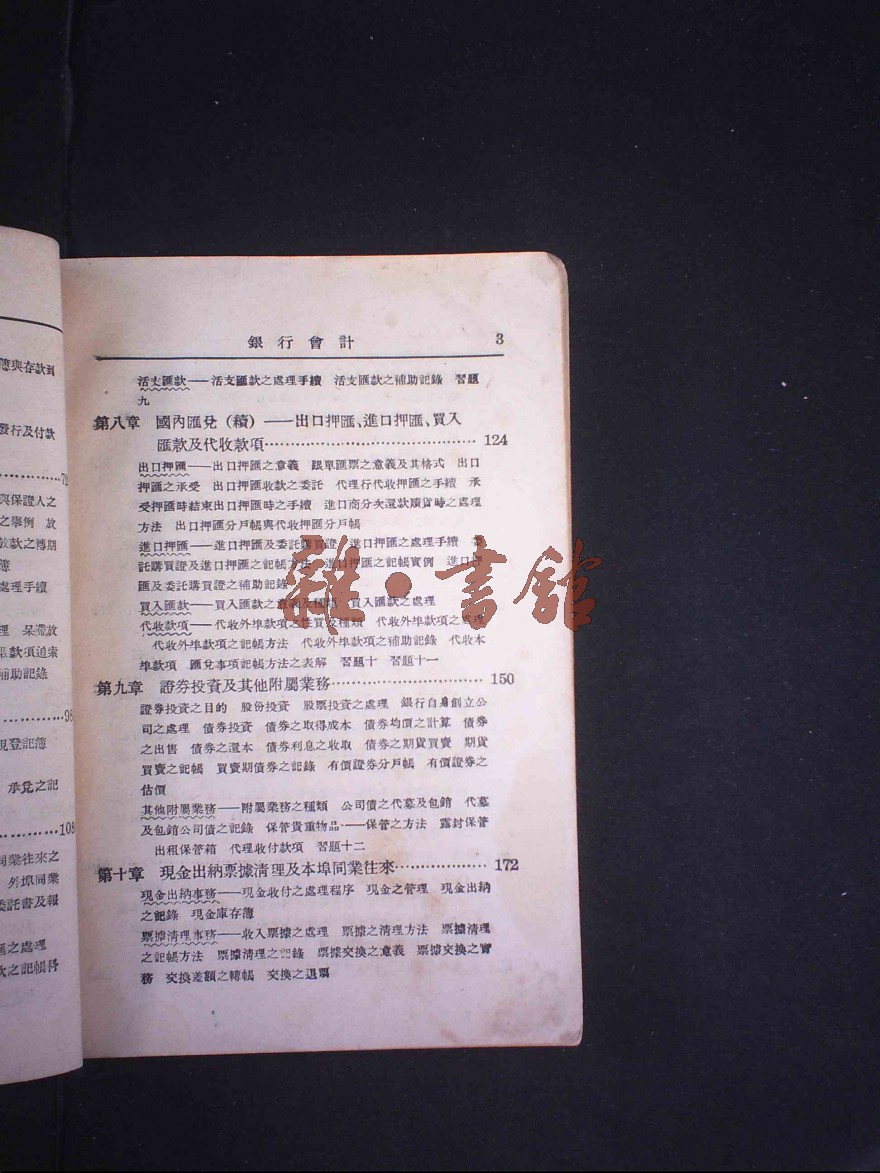 銀行會計 3
活支匯款——活支匯款之處理手續 活支匯款之補助記錄 習題
九
第八章 國內匯兌(續)——出口押匯、進口押匯、買入
匯款及代收款項 124
出口押匯——出口押匯之意義 跟單匯票之意義及其格式 出口
押匯之承受 出口押匯收款之委託 代理行代收押匯之手續 承
受押匯時結束出口押匯時之手續 進口商分次還款贖貨時之處理
方法 出口押匯分戶帳與代收押匯分戶帳
進口押匯——進口押匯及委託購買證 進口押匯之處理手續
託購買證及進口押匯之記帳方法 進口押匯之記帳實例 進口押
匯及委託購買證之補助記錄
買入匯款——買入匯款之意義及種類 買入匯款之處理
代收款項——代收外埠款項之性質及種類 代收外埠款項之處理
代收外埠款項之記帳方法 代收外埠款項之補助記錄 代收本
埠款項 匯兌事項記帳方法之表解 習題十 習題十一
第九章 證券投資及其他附屬業務 150
證券投資之目的 股份投資 股票投資之處理 銀行自身創立公
司之處理 債券投資 債券之取得成本 債券均價之計算 債券
之出售 債券之還本 債券利息之收取 債券之期貨買賣 期貨
買賣之記帳 買賣期債券之記錄 有價證券分戶帳 有價證券之
估價
其他附屬業務——附屬業務之種類 公司債之代募及包銷 代募
及包銷公司債之記錄 保管貴重物品——保管之方法 露封保管
出租保管箱 代理收付款項 習題十二
第十章 現金出納票據清理及本埠同業往來 172
現金出納事務——現金收付之處理程序 現金之管理 現金出納
之記錄 現金庫存簿
票據清理事務——收入票據之處理 票據之清理方法 票據清理
之記帳方法 票據清理之記錄 票據交換之意義 票據交換之實
務 交換差額之轉帳 交換之退票
雜·書館